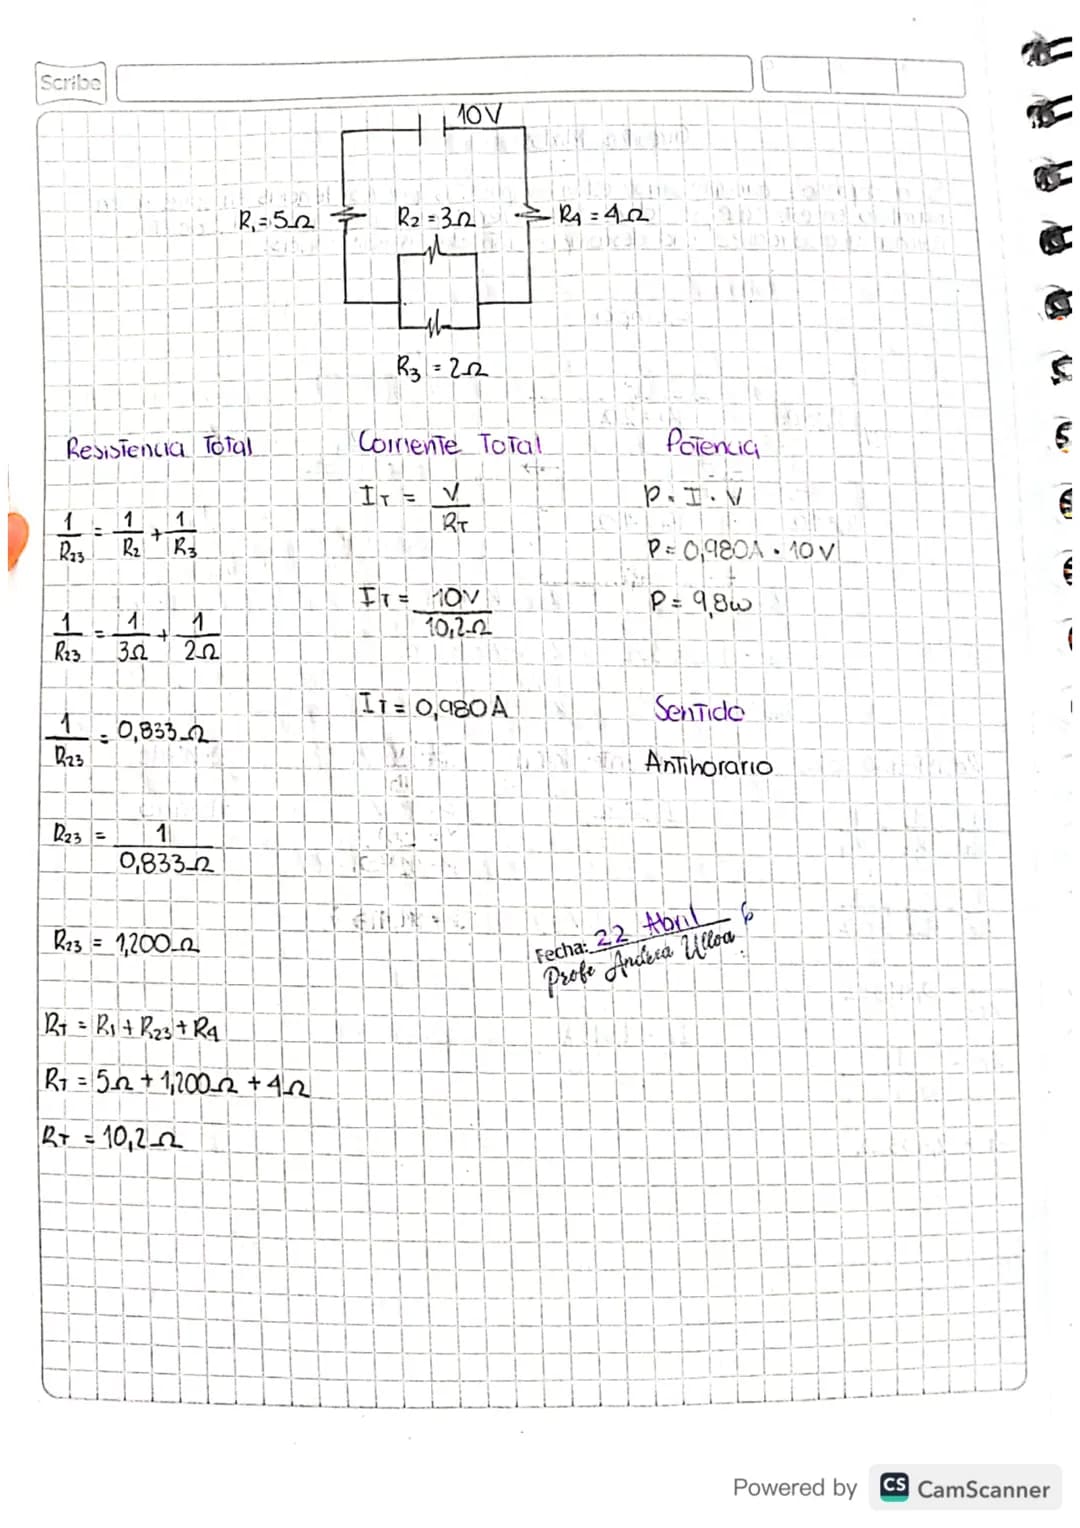 Scribe
10V
R₁=5Ω
R₂=3Ω
R₄=4Ω
R₃=2Ω
Resistencia Total
1/R₂₃ = 1/R₂ + 1/R₃
1/R₂₃ = 1/3Ω + 1/2Ω
1/R₂₃ = 0,833Ω
R₂₃ = 1/0,833Ω
R₂₃ = 1,200Ω
RT = R₁ + R₂₃ + R₄
RT = 5Ω + 1,200Ω + 4Ω
RT = 10,2Ω
Corriente Total
IT = V/RT
IT = 10V/10,2Ω
IT = 0,980A
Potencia
P = I · V
P = 0,980A · 10V
P = 9,8w
Sentido
Antihorario
Fecha: 22 Abril
Profe Andrea Ulloa
Powered by CS CamScanner